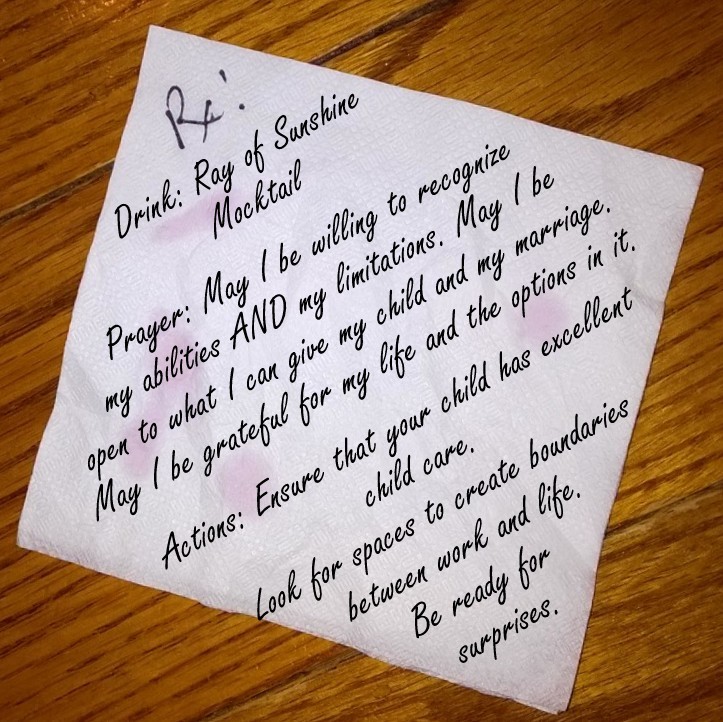 Rx!
Drink: Ray of Sunshine
Mocktail
Prayer: May I be willing to recognize
my abilities AND my limitations. May I be
open to what I can give my child and my marriage.
May I be grateful for my life and the options in it.
Actions: Ensure that your child has excellent
child care.
Look for spaces to create boundaries
between work and life.
Be ready for
surprises.